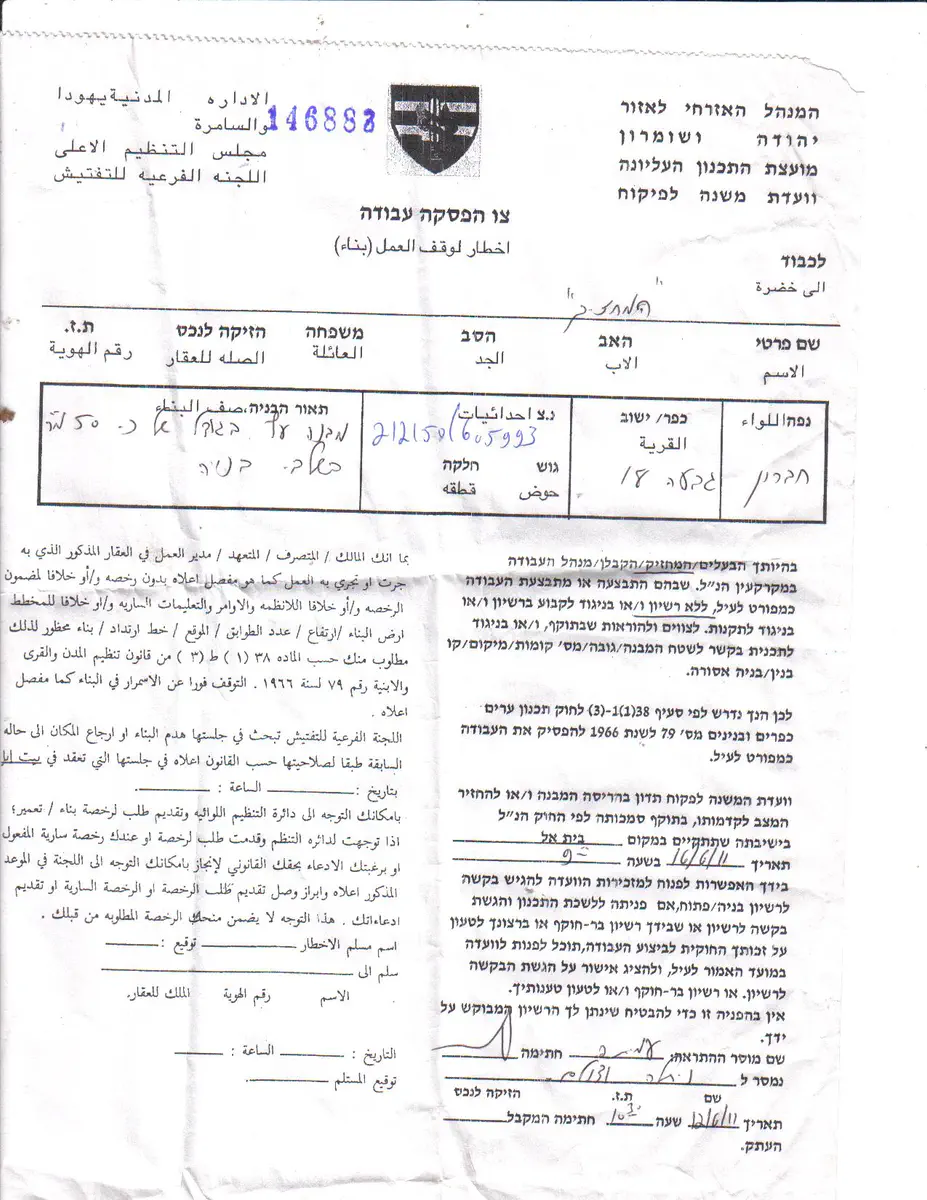 המנהל האזרחי לאזור
יהודה ושומרון
מועצת התכנון העליונה
וועדת משנה לפיקוח
الاداره المدنية يهودا
والسامرة
146883
مجلس التنظيم الاعلى
اللجنه الفرعيه للتفتيش
צו הפסקה עבודה
اخطار لوقف العمل (بناء)
לכבוד
الى حضرة
"המחזיק"
שם פרטי האב הסב משפחה הזיקה לנכס ת.ז.
الاسم الاب الجد العائلة الصله للعقار رقم الهوية
נפה اللواء
חברון
כפר/ ישוב
القرية
גבעה 18
נ.צ احداثيات
212150/605993
גוש חלקה
حوض قطعه
תאור הבניה، صف البناء
מבנה עץ בגודל של כ. 50 מ"ר
בשלב בניה
בהיותך הבעלים/המחזיק/הקבלן/מנהל העבודה
במקרקעין הנ"ל. שבהם התבצעה או מתבצעת העבודה
כמפורט לעיל, ללא רשיון ו/או בניגוד לקבוע ברשיון ו/או
בניגוד לתקנות. לצווים ולהוראות שבתוקף, ו/או בניגוד
לתכנית בקשר לשטח המבנה/גובה/מס' קומות/מיקום/קו
בנין/בניה אסורה.
לכן הנך נדרש לפי סעיף 38(1)-1(3) לחוק תכנון ערים
כפרים ובנינים מס' 79 לשנת 1966 להפסיק את העבודה
כמפורט לעיל.
וועדת המשנה לפקוח תדון בהריסה המבנה ו/או להחזיר
המצב לקדמותו, בתוקף סמכותה לפי החוק הנ"ל
בישיבתה שתתקיים במקום בית אל
תאריך 16/6/11 בשעה 9
בידך האפשרות לפנות למזכירות הוועדה להגיש בקשה
לרשיון בניה/פתוח, אם פניתה ללשכת התכנון והגשת
בקשה לרשיון או שבידך רשיון בר-חוקף או ברצונך לטעון
על זכותך החוקית לביצוע העבודה, תוכל לפנות לוועדה
במועד האמור לעיל, ולהציג אישור על הגשת הבקשה
לרשיון. או רשיון בר-חוקף ו/או לטעון טענותיך.
אין בהפניה זו כדי להבטיח שינתן לך הרשיון המבוקש על
ידך.
שם מוסר ההתראה: חתימה
נמסר ל
שם ת.ז. הזיקה לנכס
תאריך 12/6/11 שעה 10 חתימה המקבל
העתק.
بما انك المالك / المتصرف / المتعهد / مدير العمل في العقار المذكور الذي به
جرت او تجري به العمل كما هو مفصل اعلاه بدون رخصه و/أو خلافا لمضمون
الرخصه و/أو خلافا للانظمه والاوامر والتعليمات الساريه و/او خلافا للمخطط
ارض البناء /ارتفاع / عدد الطوابق / الموقع / خط ارتداد / بناء محظور لذلك
مطلوب منك حسب الماده ٣٨ (١) ط (٣) من قانون تنظيم المدن والقرى
والابنية رقم ٧٩ لسنة ١٩٦٦ . التوقف فورا عن الاسمرار في البناء كما مفصل
اعلاه .
اللجنة الفرعية للتفتيش تبحث في جلستها هدم البناء او ارجاع المكان الى حاله
السابقة طبقا لصلاحيتها حسب القانون اعلاه في جلستها التي تعقد في بيت ايل
بتاريخ : الساعة :
بامكانك التوجه الى دائرة التنظيم اللوائيه وتقديم طلب لرخصة بناء / تعمير؛
اذا توجهت لدائره التنظم وقدمت طلب لرخصة او عندك رخصة سارية المفعول
او برغبتك الادعاء بحقك القانوني لإنجاز بامكانك التوجه الى اللجنة في الموعد
المذكور اعلاه وابراز وصل تقديم طلب الرخصة او الرخصة السارية او تقديم
ادعاءاتك . هذا التوجه لا يضمن منحك الرخصة المطلوبه من قبلك .
اسم مسلم الاخطار توقيع :
سلم الى
الاسم رقم الهوية الملك للعقار.
التاريخ : الساعة :
توقيع المستلم